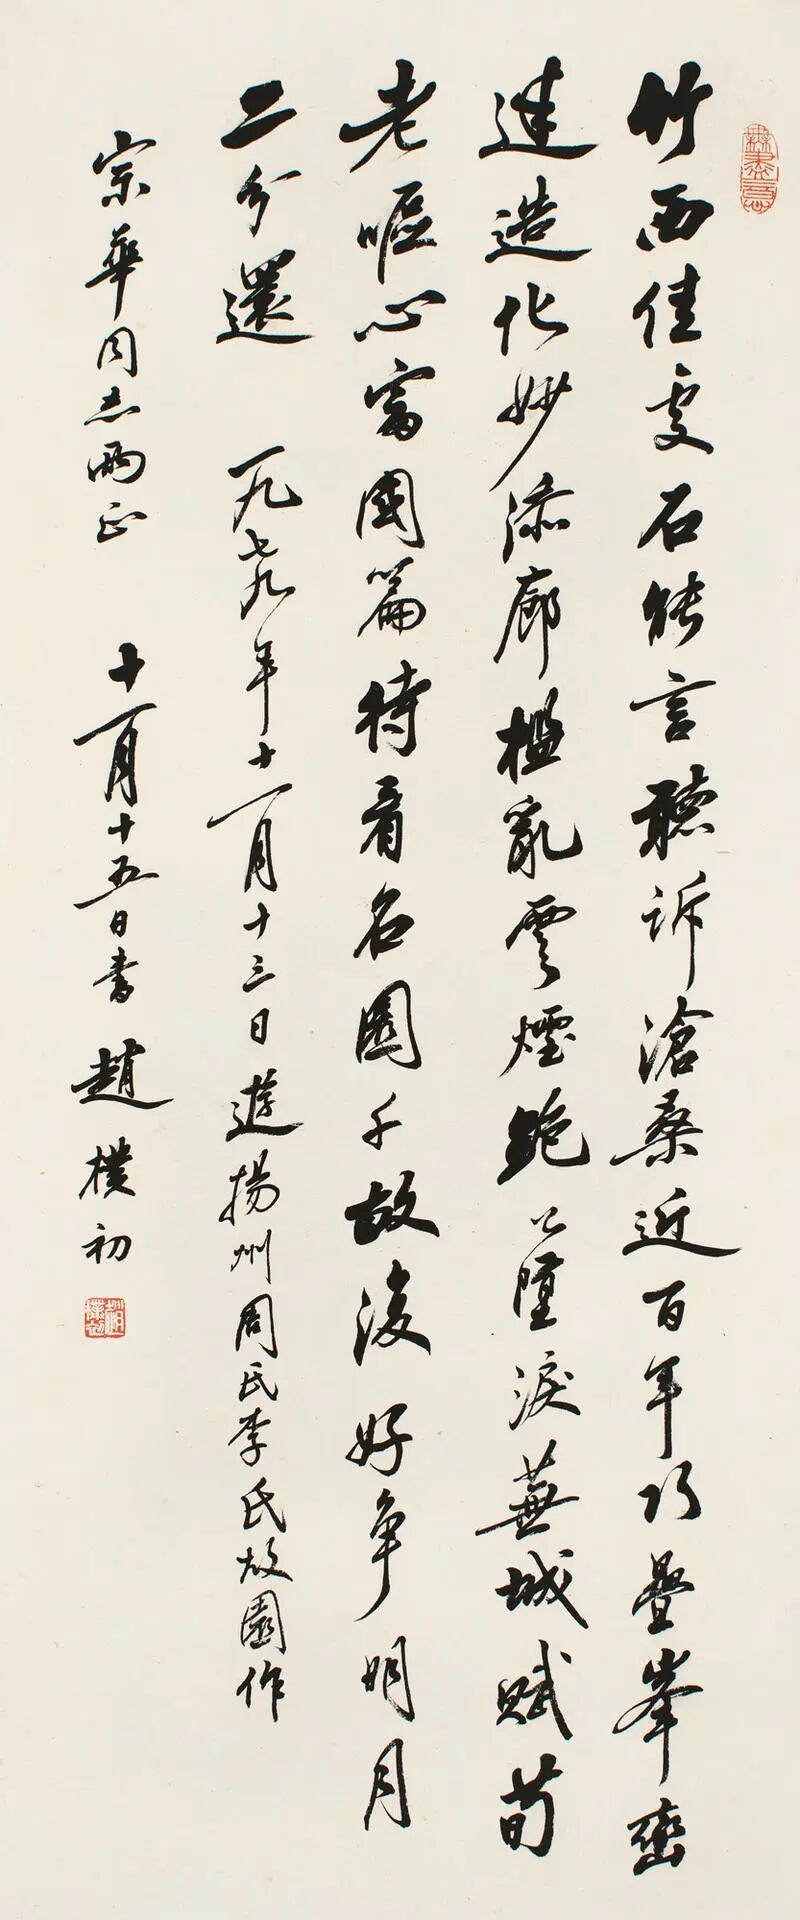 無盡意
竹西佳處石能言聽訴滄桑近百年巧疊峯巒
迷造化妙添廊檻亂雲煙鮑公墮淚蕪城賦荀
老嘔心富國篇待看名園千故復好争明月
二分還 一九七九年十一月十三日遊揚州周氏李氏故園作
宗華同志兩正 十一月十五日書 趙樸初
趙樸初